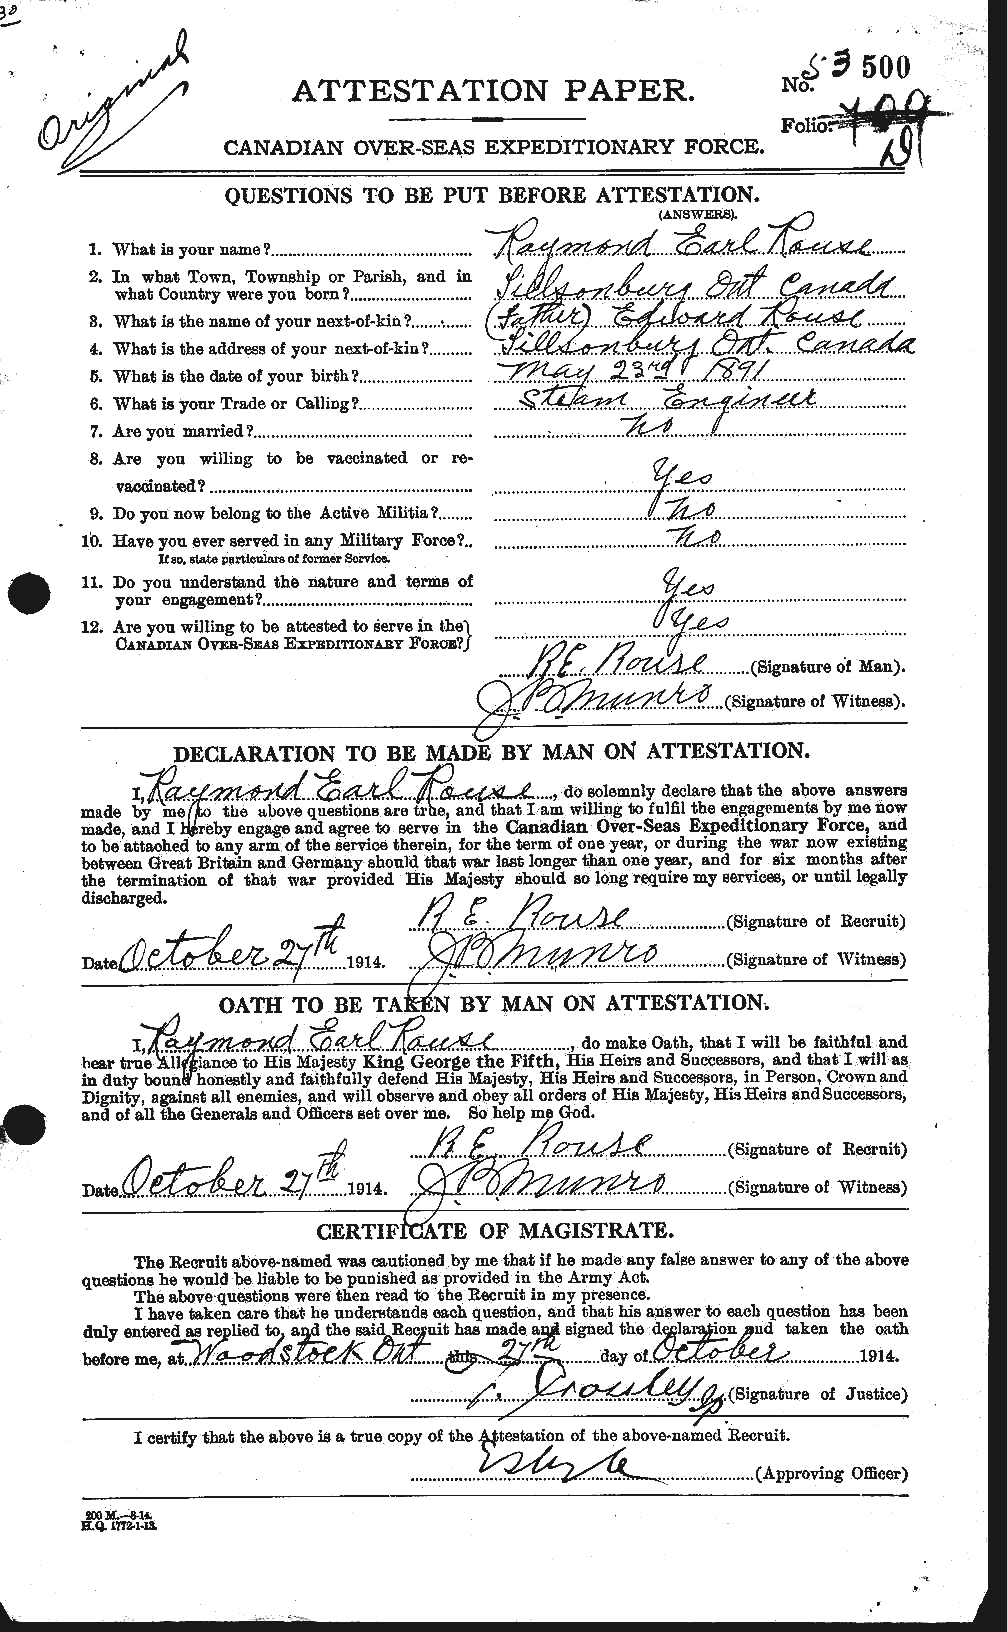 Original
No. 53500
ATTESTATION PAPER.
Folio.
CANADIAN OVER-SEAS EXPEDITIONARY FORCE.
QUESTIONS TO BE PUT BEFORE ATTESTATION.
(ANSWERS).
1. What is your name? Raymond Earl Rouse
2. In what Town, Township or Parish, and in
what Country were you born? Tillsonburg Ont Canada
3. What is the name of your next-of-kin? (Father) Edward Rouse
4. What is the address of your next-of-kin? Tillsonburg Ont. Canada
5. What is the date of your birth? May 23rd 1891
6. What is your Trade or Calling? Steam Engineer
7. Are you married? No
8. Are you willing to be vaccinated or re-
vaccinated? Yes
9. Do you now belong to the Active Militia? No
10. Have you ever served in any Military Force? No
If so, state particulars of former Service.
11. Do you understand the nature and terms of
your engagement? Yes
12. Are you willing to be attested to serve in the
CANADIAN OVER-SEAS EXPEDITIONARY FORCE? Yes
R.E. Rouse (Signature of Man).
J.B. Munro (Signature of Witness).
DECLARATION TO BE MADE BY MAN ON ATTESTATION.
I, Raymond Earl Rouse, do solemnly declare that the above answers
made by me to the above questions are true, and that I am willing to fulfil the engagements by me now
made, and I hereby engage and agree to serve in the Canadian Over-Seas Expeditionary Force, and
to be attached to any arm of the service therein, for the term of one year, or during the war now existing
between Great Britain and Germany should that war last longer than one year, and for six months after
the termination of that war provided His Majesty should so long require my services, or until legally
discharged.
R E. Rouse (Signature of Recruit)
Date October 27th 1914. J B Munro (Signature of Witness)
OATH TO BE TAKEN BY MAN ON ATTESTATION.
I, Raymond Earl Rouse, do make Oath, that I will be faithful and
bear true Allegiance to His Majesty King George the Fifth, His Heirs and Successors, and that I will as
in duty bound honestly and faithfully defend His Majesty, His Heirs and Successors, in Person, Crown and
Dignity, against all enemies, and will observe and obey all orders of His Majesty, His Heirs and Successors,
and of all the Generals and Officers set over me. So help me God.
R E. Rouse (Signature of Recruit)
Date October 27th 1914. J.B. Munro (Signature of Witness)
CERTIFICATE OF MAGISTRATE.
The Recruit above-named was cautioned by me that if he made any false answer to any of the above
questions he would be liable to be punished as provided in the Army Act.
The above questions were then read to the Recruit in my presence.
I have taken care that he understands each question, and that his answer to each question has been
duly entered as replied to, and the said Recruit has made and signed the declaration and taken the oath
before me, at Woodstock Ont this 27th day of October 1914.
(Signature of Justice)
I certify that the above is a true copy of the Attestation of the above-named Recruit.
(Approving Officer)
200 M.—8-14.
H.Q. 1772-1-13.